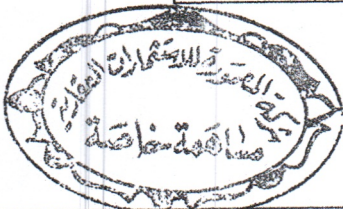 شركة المصورة للاستثمارات العقارية
مساهمة خاصة